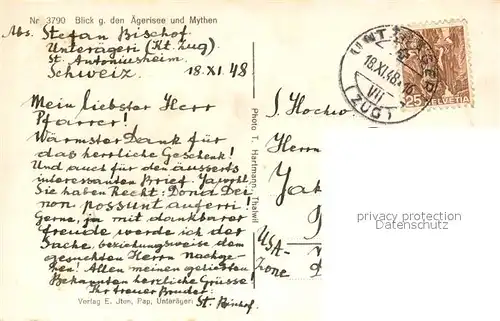 Nr. 3790 Blick g. den Ägerisee und Mythen
Abs. Stefan Bischof
Unterägeri (Kt. Zug)
St. Antoniusheim
Schweiz 18.XI.48
Mein liebster Herr
Pfarrer!
Wärmster Dank für
das herrliche Geschenk!
Und auch für den äusserts
interessanten Brief. Jawohl
Sie haben Recht: Dona Dei
non possunt auferri!
Gerne, ja mit dankbarer
Freude werde ich der
Sache, beziehungsweise dem
gesuchten Herrn nachge-
hen! Allen meinen geliebten
Bekannten herzliche Grüsse
Ihr treuer Bruder:
St. Bischof.
Verlag E. Jten, Pap. Unterägeri
Photo T. Hartmann, Thalwil
UNTERÄGERI
18.XI.48
VII
(ZUG)
25 HELVETIA
S. Hochw.
Herrn
USA-
Zone
privacy protection
Datenschutz